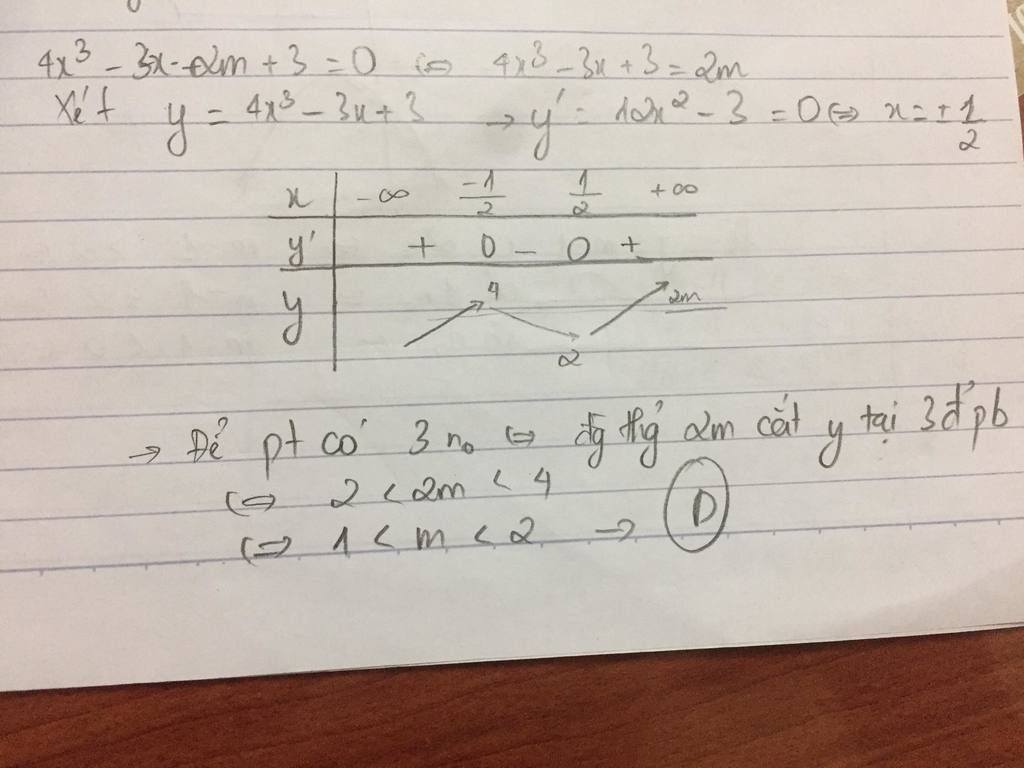 4x³ - 3x - 2m + 3 = 0 ⇔ 4x³ - 3x + 3 = 2m
Xét y = 4x³ - 3x + 3 → y' = 12x² - 3 = 0 ⇔ x = ± 1/2
x -∞ -1/2 1/2 +∞
y' + 0 - 0 +
y 4 2 2m
→ Để pt có 3 n₀ ⇔ đg thg̉ 2m cắt y tại 3 đ' pb
⇔ 2 < 2m < 4
⇔ 1 < m < 2 → D